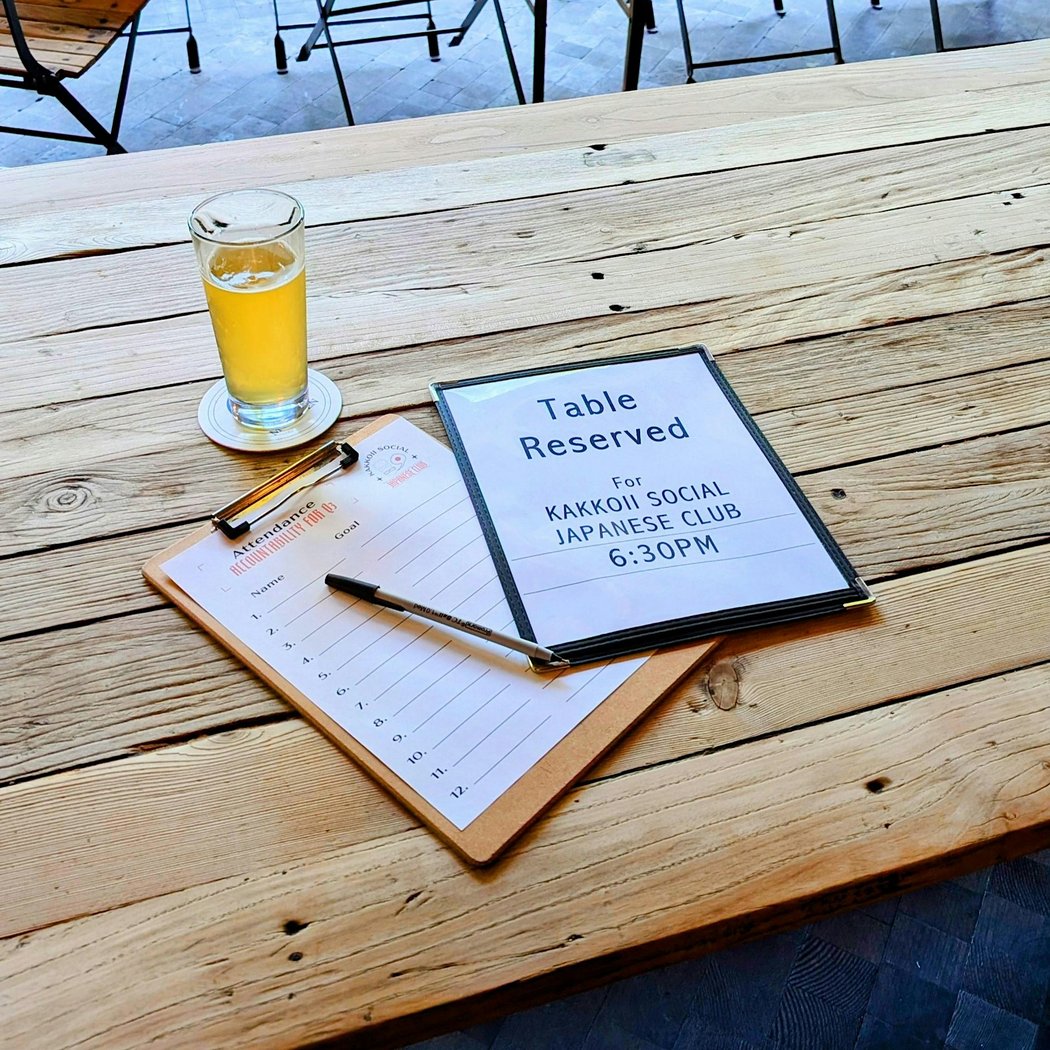 Table
Reserved
For
KAKKOII SOCIAL
JAPANESE CLUB
6:30PM
KAKKOII SOCIAL
JAPANESE CLUB
Attendance
ACCOUNTABILITY FOR US
Name
Goal
1.
2.
3.
4.
5.
6.
7.
8.
9.
10.
11.
12.